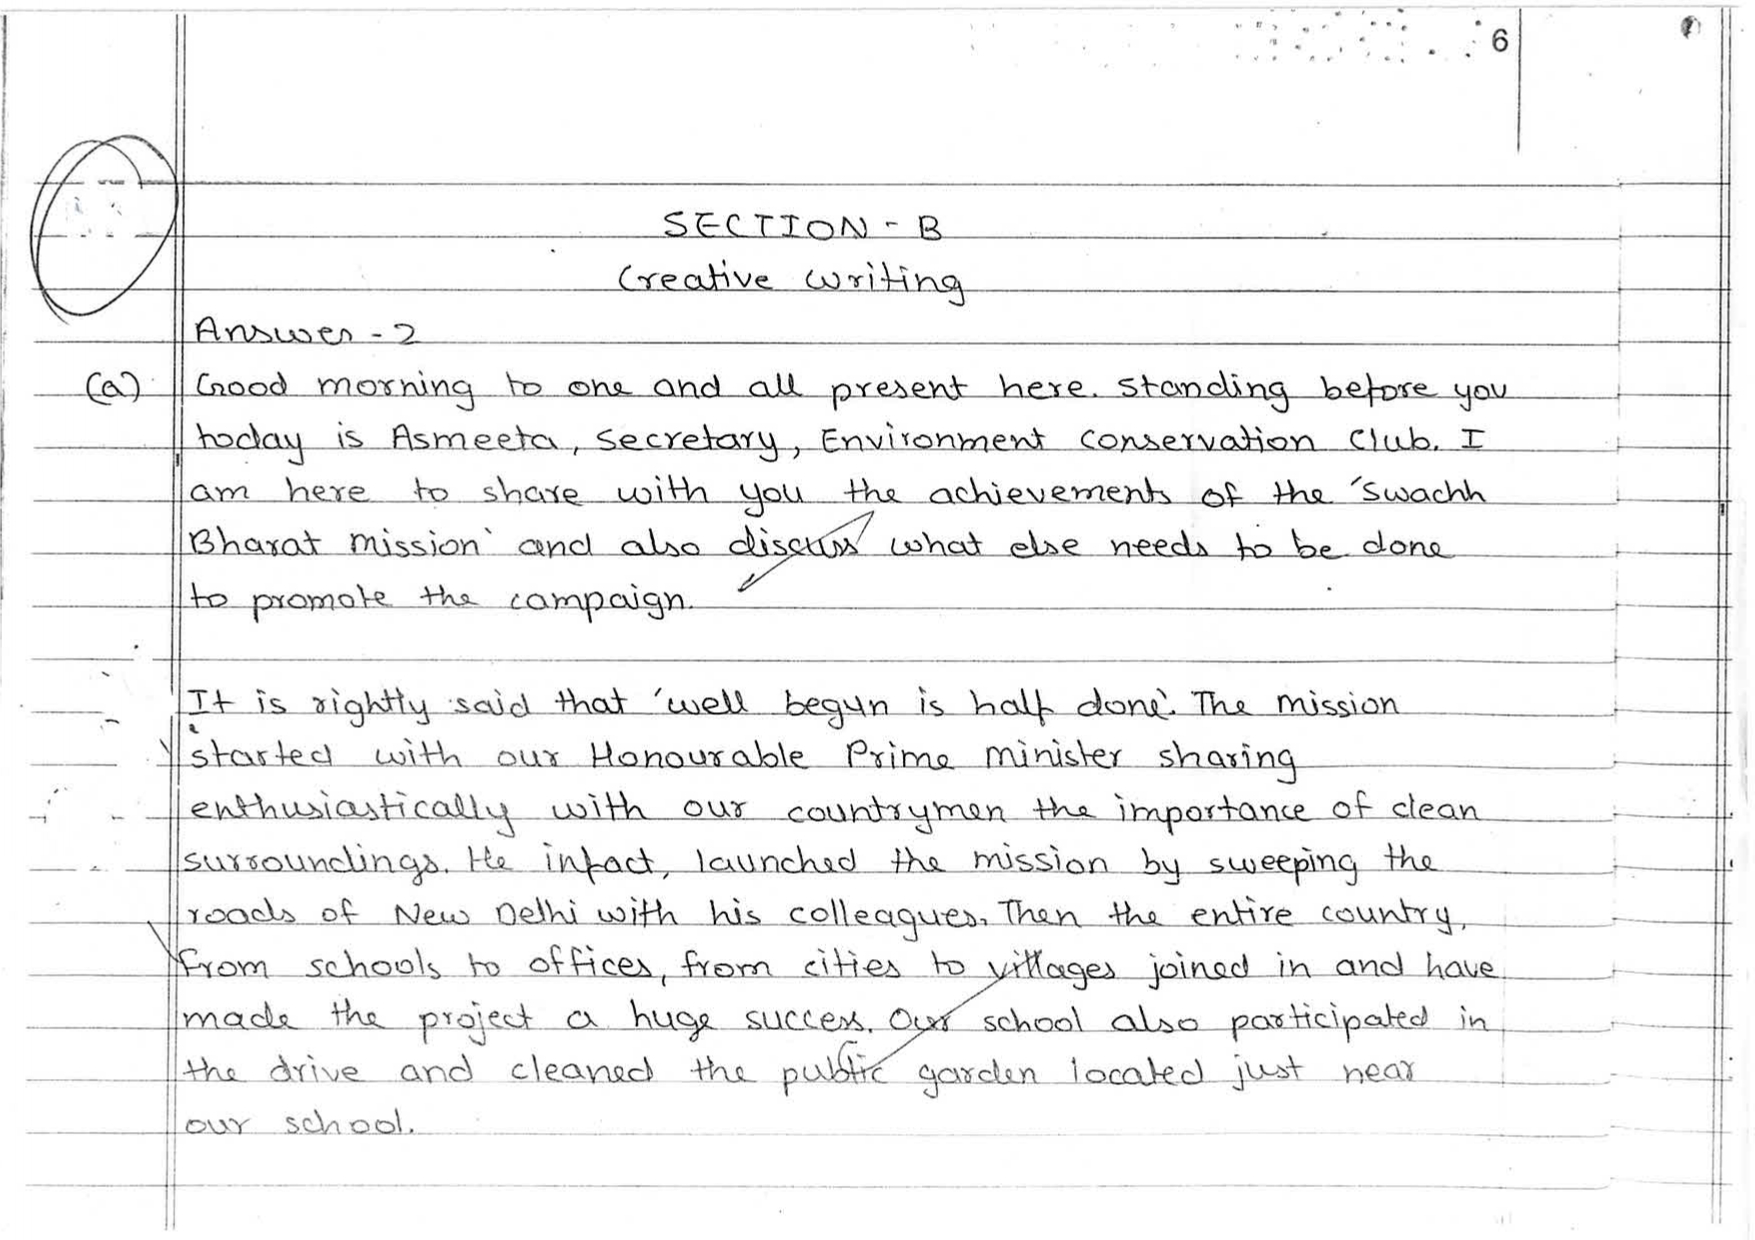 6
SECTION - B
Creative writing
Answer - 2
(a) Good morning to one and all present here. Standing before you
today is Asmeeta, Secretary, Environment Conservation Club. I
am here to share with you the achievements of the 'Swachh
Bharat Mission' and also discuss what else needs to be done
to promote the campaign.
It is rightly said that 'well begun is half done'. The mission
started with our Honourable Prime Minister sharing
enthusiastically with our countrymen the importance of clean
surroundings. He infact, launched the mission by sweeping the
roads of New Delhi with his colleagues. Then the entire country,
from schools to offices, from cities to villages joined in and have
made the project a huge success. Our school also participated in
the drive and cleaned the public garden located just near
our school.